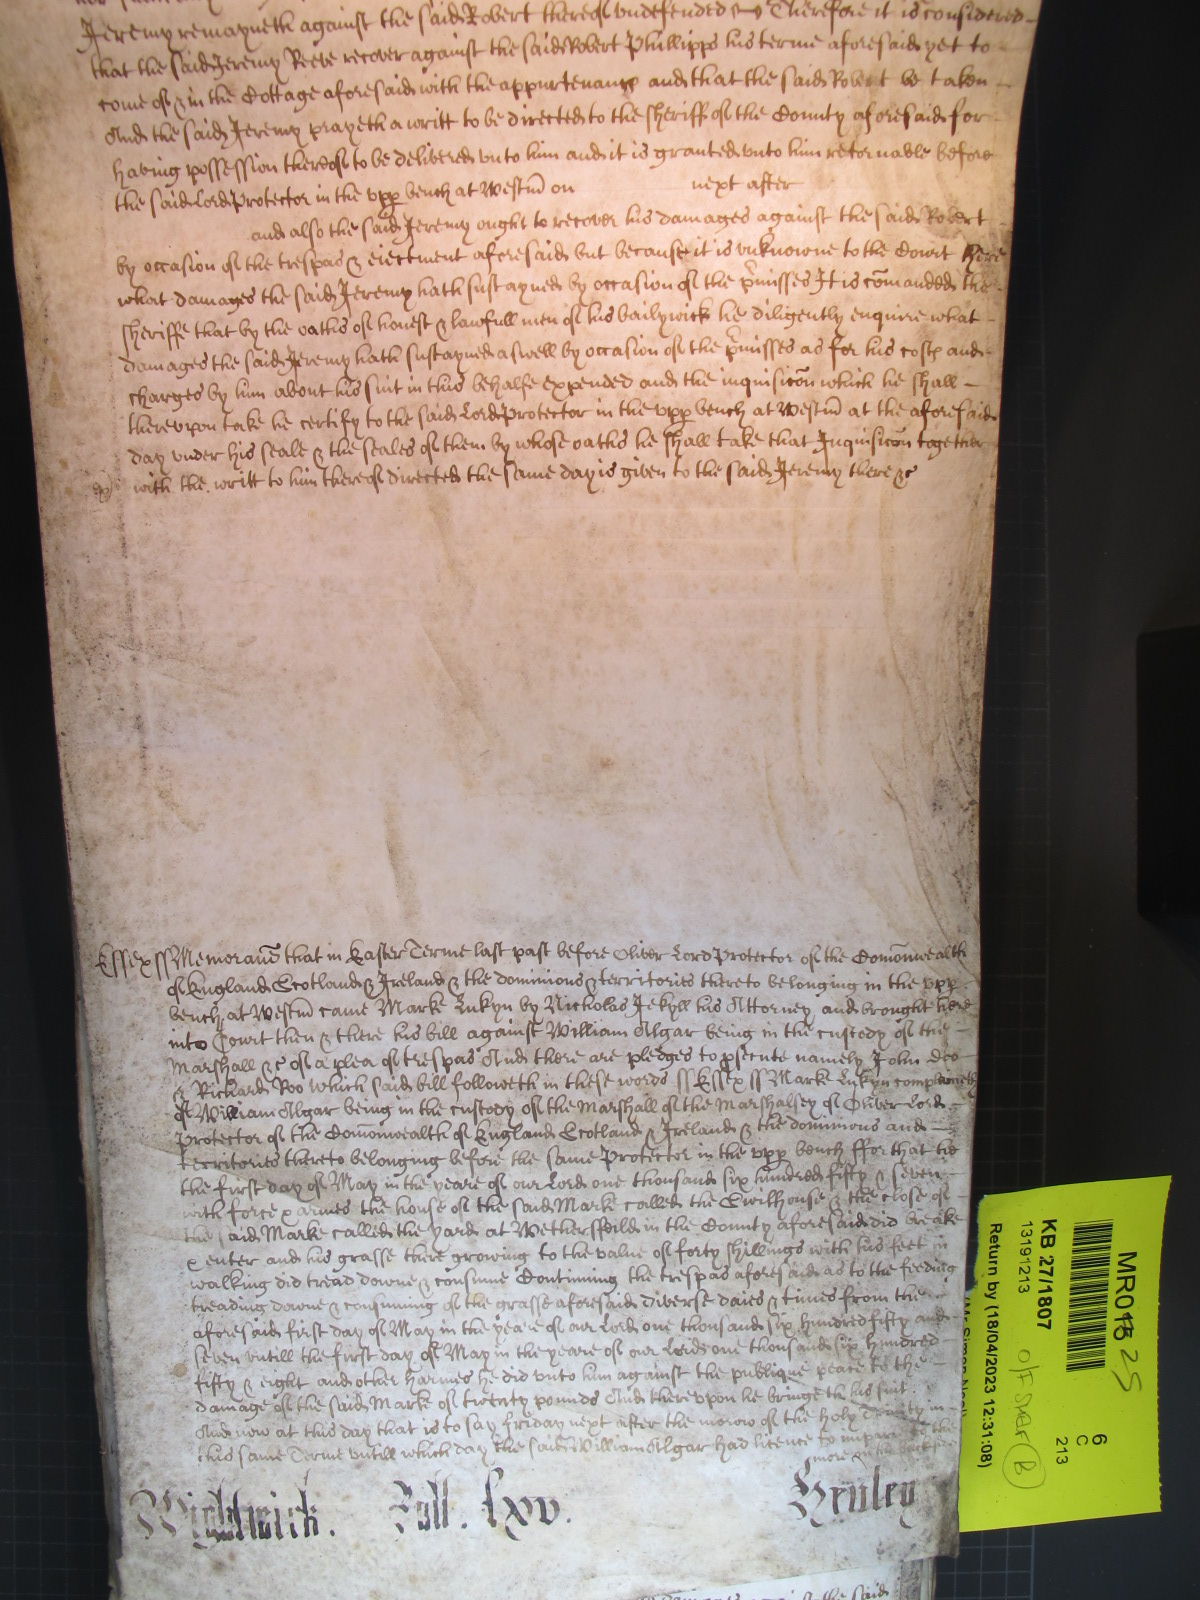 Jeremy remayneth against the said Robert thereof undefended Therefore it is considered
that the said Jeremy Reeve recover against the said Robert Phillipps his terme aforesaid yet to
come of & in the Cottage aforesaid with the appurtenancs and that the said Robert be taken
And the said Jeremy prayeth a writt to be directed to the sheriff of the County aforesaid for
having possession thereof to be delivered unto him and it is granted unto him retornable before
the said Lord Protector in the upp bench at Westm on next after
and also the said Jeremy ought to recover his damages against the said Robert
by occasion of the trespas & eiectment aforesaid but because it is unknowne to the Court here
what damages the said Jeremy hath sustayned by occasion of the pmisses It is comanded the
sheriffe that by the oaths of honest & lawfull men of his bailywick he diligently enquire what
damages the said Jeremy hath sustayned aswell by occasion of the pmisses as for his costs and
charges by him about his suit in this behalfe expended and the inquisicon which he shall
thereupon take he certify to the said Lord Protector in the upp bench at Westm at the aforesaid
day under his seale & the seales of them by whose oaths he shall take that Inquisicon together
with the writt to him thereof directed the same day is given to the said Jeremy there &c
Essex ss Memorand that in Easter Terme last past before Oliver Lord Protector of the Comonwealth
of England Scotland & Ireland & the dominions & territories thereto belonging in the upp
bench at Westm came Marke Lukyn by Nicholas Jekyll his Attorney and brought here
into Court then & there his bill against William Algar being in the custody of the
Marshall &c of a plea of trespas And there are pledges to psecute namely John Doo
& Richard Roo which said bill followeth in these words ss Essex ss Marke Lukyn complaineth
of William Algar being in the custody of the Marshall of the Marshalsey of Oliver Lord
Protector of the Comonwealth of England Scotland & Ireland & the dominions and
territories thereto belonging before the same Protector in the upp bench ffor that he
the first day of May in the yeare of our Lord one thousand six hundred fifty & seven
with force & armes the house of the said Marke called the Ewilhouse & the close of
the said Marke called the Yard at Wethersfeild in the County aforesaid did breake
& enter and his grasse there growing to the value of forty shillings with his feet in
walking did tread downe & consume Continuing the trespas aforesaid as to the feeding
treading downe & consuming of the grasse aforesaid diverse daies & times from the
aforesaid first day of May in the yeare of our Lord one thousand six hundred fifty and
seven untill the first day of May in the yeare of our Lord one thousand six hundred
fifty & eight and other harmes he did unto him against the publique peace to the
damage of the said Marke of twenty pounds And thereupon he bringeth his suit
And now at this day that is to say Friday next after the morow of the holy Trinity in
this same Terme untill which day the said William Algar had licence to imparle to the
more on the backside
Wightwick. Roll. lxv. Henley
MR018 25
6
C
213
KB 27/1807
13191213
O/F SHELF B
Return by (18/04/2023 12:31:08)